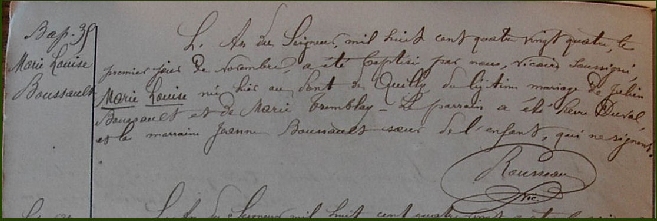 Bap. 35
Marie Louise
Boussault
L'An du Seigneur, mil huit cent quatre vingt quatre, le
premier jour de Novembre, a été baptisée par nous, vicaire soussigné,
Marie Louise née hier au Pont de Quilly du légitime mariage de Julien
Boussault et de Marie Tremblay - Le parrain a été Pierre Duval,
et la marraine Jeanne Boussault sœur de l'enfant, qui ne signent.
Rousseau
Vic.
L'An du Seigneur mil huit cent quatre